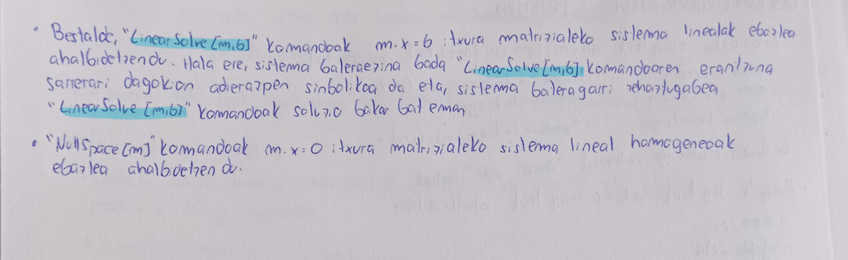 • Bestalde, "LinearSolve[m,b]" komandoak m.x=b itxura matrizialeko sistema linealak ebaztea
ahalbidetzendu. Hala ere, sistema bateraezina bada "LinearSolve[m,b]" komandoaren erantzuna
sarrerari dagokion adierazpen sinbolikoa da eta, sistema bateragarri zehaztugabea
"LinearSolve[m,b]" komandoak soluzio bakar bat eman.
• "NullSpace[m]" komandoak m.x=0 itxura matrizialeko sistema lineal homogeneoak
ebaztea ahalbidetzen du.